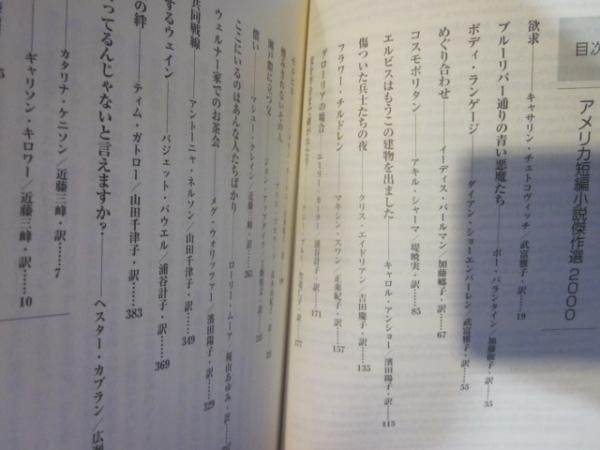 目次
アメリカ短編小説傑作選2000
欲求――キャサリン・チェトコヴィッチ/武富雅子・訳……19
ブルーリバー通りの青い悪魔たち――ボー・バランタイン/加藤淑子・訳……35
ボディ・ランゲージ――ダイアン・ショーエンパーレン/武富雅子・訳……55
めぐり合わせ――イーディス・パールマン/加藤郷子・訳……67
コスモポリタン――アキル・シャーマ/堤暁実・訳……85
エルビスはもうこの建物を出ました――キャロル・アンショー/濱田陽子・訳……115
傷ついた兵士たちの夜――クリス・エイドリアン/吉田慶子・訳……135
フラワー・チルドレン――マキシン・スワン/正東紀子・訳……157
グローリアの場合――エーリー・カーター/浦谷計子・訳……171
177
瀬戸際に立つ父
償い――マシュー・クレイン/近藤三峰・訳……265
ここにいるのはあんな人たちばかり――ローリー・ムーア/梶山あゆみ・訳
ウェルナー家でのお茶会――メグ・ウォリッツァー/濱田陽子・訳……329
共同戦線――アントーニャ・ネルソン/山田千津子・訳……349
するウェイン――パジェット・パウエル/浦谷計子・訳……369
の絆――ティム・ガトロー/山田千津子・訳……383
ってるんじゃないと言えますか?――ヘスター・カプラン/広瀬
カタリナ・ケニソン/近藤三峰・訳……7
ギャリソン・キロワー/近藤三峰・訳……10